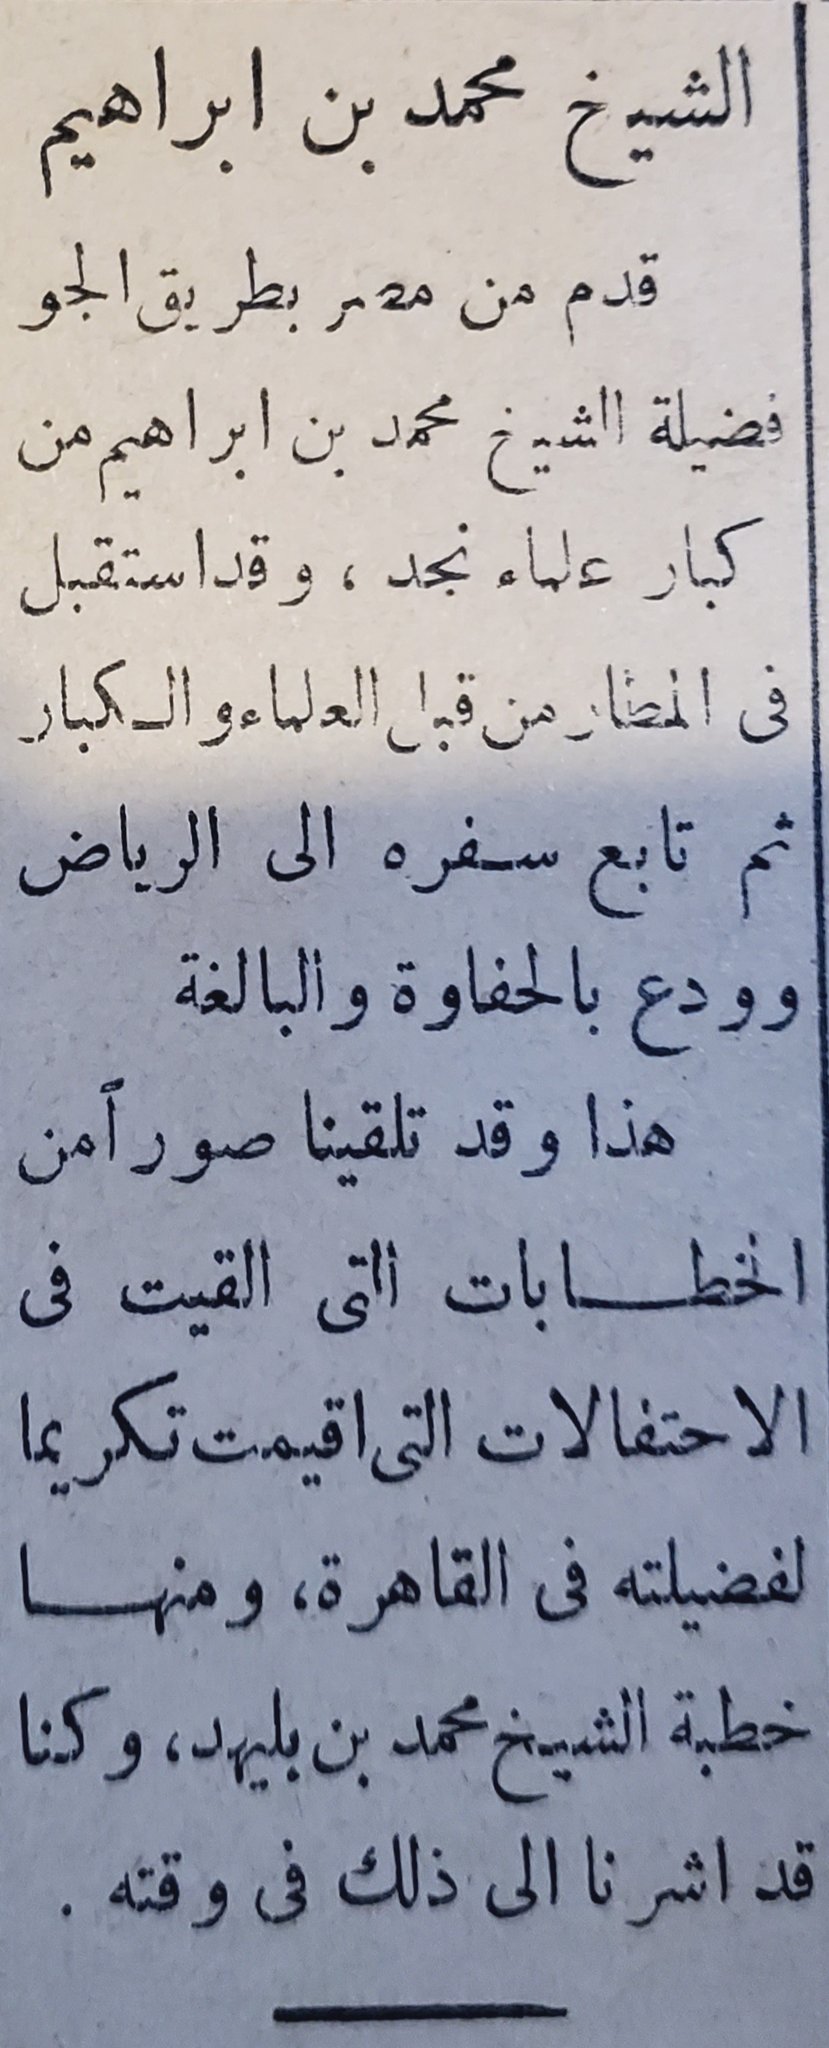 الشيخ محمد بن ابراهيم
قدم من مصر بطريق الجو
فضيلة الشيخ محمد بن ابراهيم من
كبار علماء نجد ، وقد استقبل
فى المطار من قبل العلماء والكبار
ثم تابع سفره الى الرياض
وودع بالحفاوة والبالغة
هذا وقد تلقينا صوراً من
الخطابات التى القيت فى
الاحتفالات التى اقيمت تكريما
لفضيلته فى القاهرة، ومنها
خطبة الشيخ محمد بن بليهد، وكنا
قد اشرنا الى ذلك فى وقته .